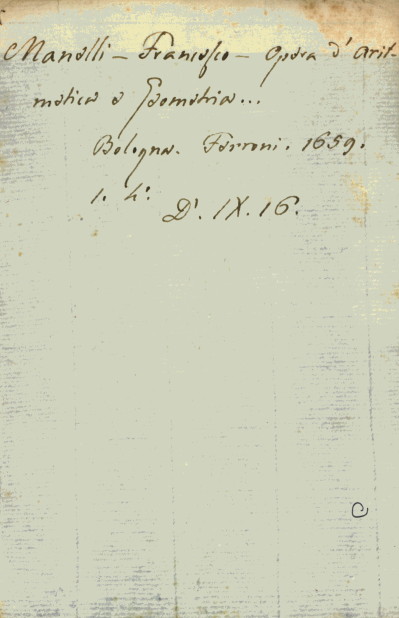 Manelli - Francesco - Opera d'Arit-
metica e Geometria...
Bologna. Ferroni. 1659.
1. 4°.
D'. IX. 16.